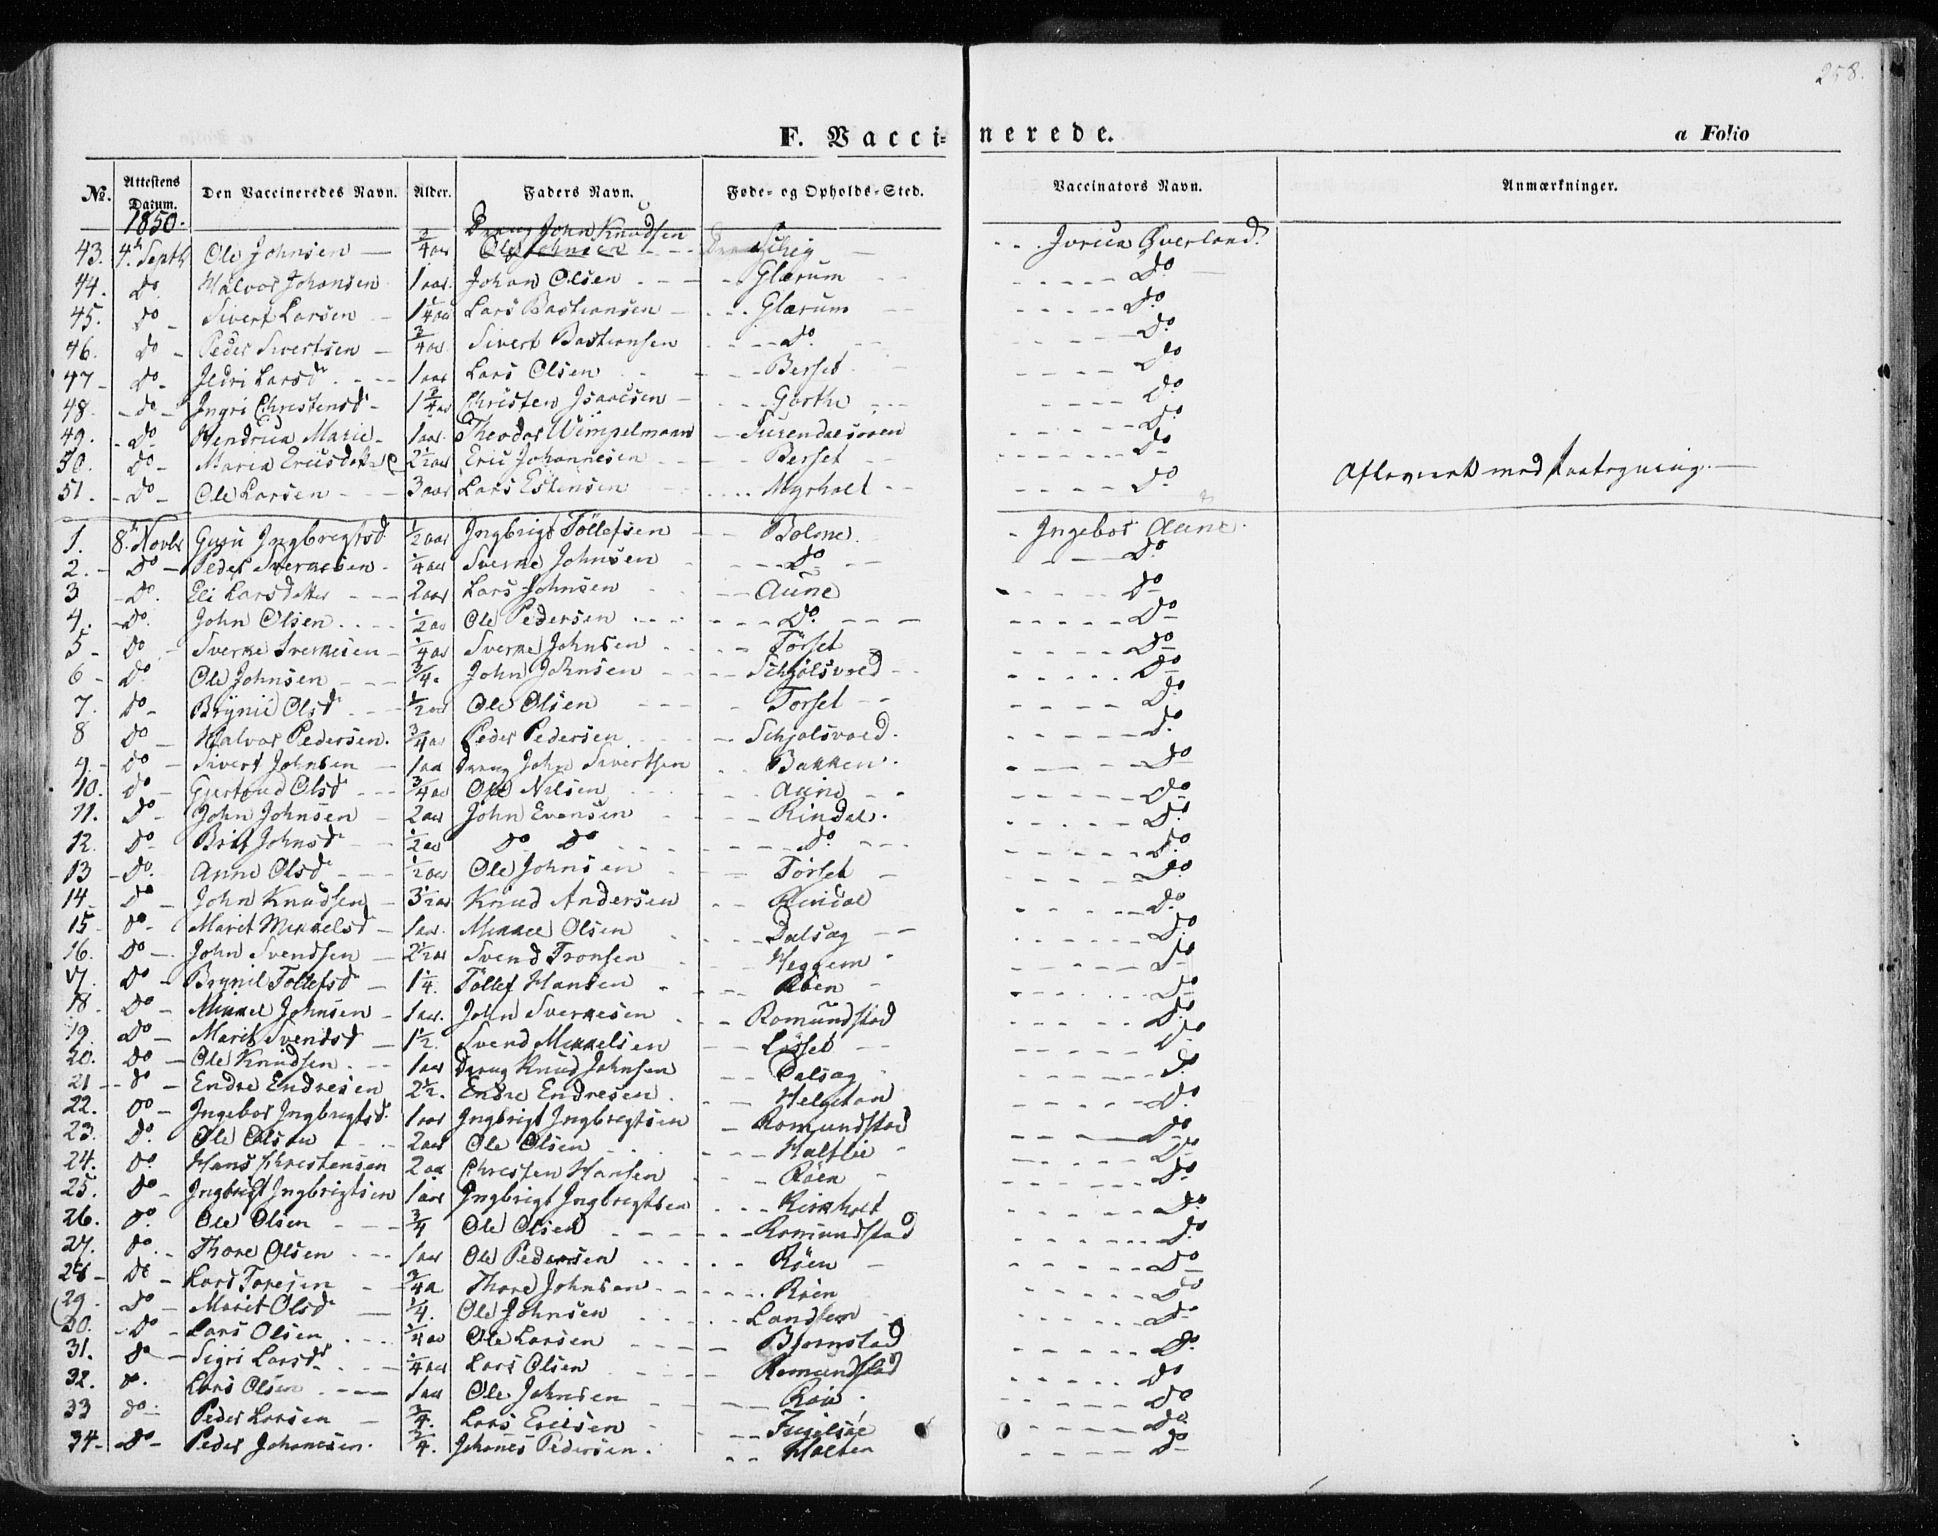 258.
F. Vaccinerede. a Folio
No. Attestens Datum. Den Vaccineredes Navn. Alder. Faders Navn. Føde- og Opholds-Sted. Vaccinators Navn. Anmærkninger.
1850.
Drang John Knudsen
43. 4 Septb Ole Johnsen 3/4 aar Ole Johnsen Overland.
44. Do Halvor Johansen 1 aar Johan Olsen Glærum Do
45. Do Sivert Larsen 1 1/4 aar Lars Bastiansen Glærum Do
46. Do Peder Sivertsen 3/4 aar Sivert Bastiansen Do Do
47 Do Larsd. 1 aar Lars Olsen Berset Do
48. do Ingri Christensd 1 3/4 aar Christen Isaacsen Garthe Do
49. Do Hendrica Marie 1 aar Theodor Wimpelmann Surendalsøren Do
50. Do Maria Ericsdatter 2 1/2 aar Eric Johannesen Berset Do
51. Do Ole Larsen 3 aar Lars Estensen Myrholt Do
1. 8 Novbr Guru Ingbregtsd 1/2 aar Ingbrigt Töllefsen Bolme. Ingebor Aune.
2. Do Peder Sverkesen 1/4 aar Sverke Johnsen Do Do
3 Do Eli Larsdatter 2 aar Lars Johnsen Aune Do
4. Do John Olsen 1/2 aar Ole Pedersen Do Do
5 Do Sverke Sverkesen 1/4 aar Sverke Johnsen Torset Do
6 Do Ole Johnsen 3/4. John Johnsen Schjølsvold Do
7. Do Olsd 1/2 aar Ole Olsen Torset Do
8 Do Halvor Pedersen. 3/4 aar Peder Pedersen Schjolsvold. Do
9. Do Sivert Johnsen 1 aar Drang John Sivertsen Bakken. Do
10. Do Gjertrud Olsd 3/4 aar Ole Nilsen Aune Do
11. Do John Johnsen 2 aar John Evensen Rindal. Do
12. Do Brit Johnsd 1/2 aar Do Do Do Do
13 Do Anne Olsd 1/2 aar Ole Johnsen Torset Do
14 Do John Knudsen 3 1/2 aar Knud Andersen Rindal Do
15 Do Marit Mikkelsd 1 aar. Mikkel Olsen Dalsag Do
16. Do John Svendsen 2 1/2 aar Svend Tronsen Heggem Do
17. Do Brynil Tollefsd 1 1/4. Töllef Hansen Røen Do
18. Do Mikkel Johnsen 1 aar. John Sverkesen Romundstad Do
19. Do Marit Svendsd 1 1/2. Svend Mikkelsen Løset Do
20. Do Ole Knudsen 1 aar Drang Knud Johnsen Dalsag Do
21 Do Endre Endresen 2 1/2. Endre Endresen. Helgetun Do
22. Do Ingebor Ingbregtsd. 1 aar Ingbrigt Ingbregtsen Romundstad Do
23. Do Ole Olsen 2 aar Ole Olsen Haltlie Do
24. Do Hans Christensen 2 aar Christen Hansen Röen Do
25. Do Ingbrigt Ingbrigtsen 1 aar Ingbrigt Ingbregtsen Kirkholt Do
26. Do Ole Olsen 3/4 Ole Olsen Romundstad Do
27. Do Thore Olsen 1 aar Ole Pedersen Röen Do
28 Do Lars Toresen 3/4 a Thore Johnsen Röen Do
29. Do Marit Olsd 1/4. Ole Johnsen Landsem Do
30. Do Lars Olsen 1/4 aar Ole Larsen Bjørnstad Do
31. Do Sigri Larsd 1/4 aar Lars Olsen Romundstad Do
32. Do Lars Olsen 1 aar Ole Johnsen Do
33 Do Peder Larsen 3/4. Lars Ericsen Fugelsøe Do
34 Do Peder Johanesen. 3/4. Johanes Pedersen. Holten Do